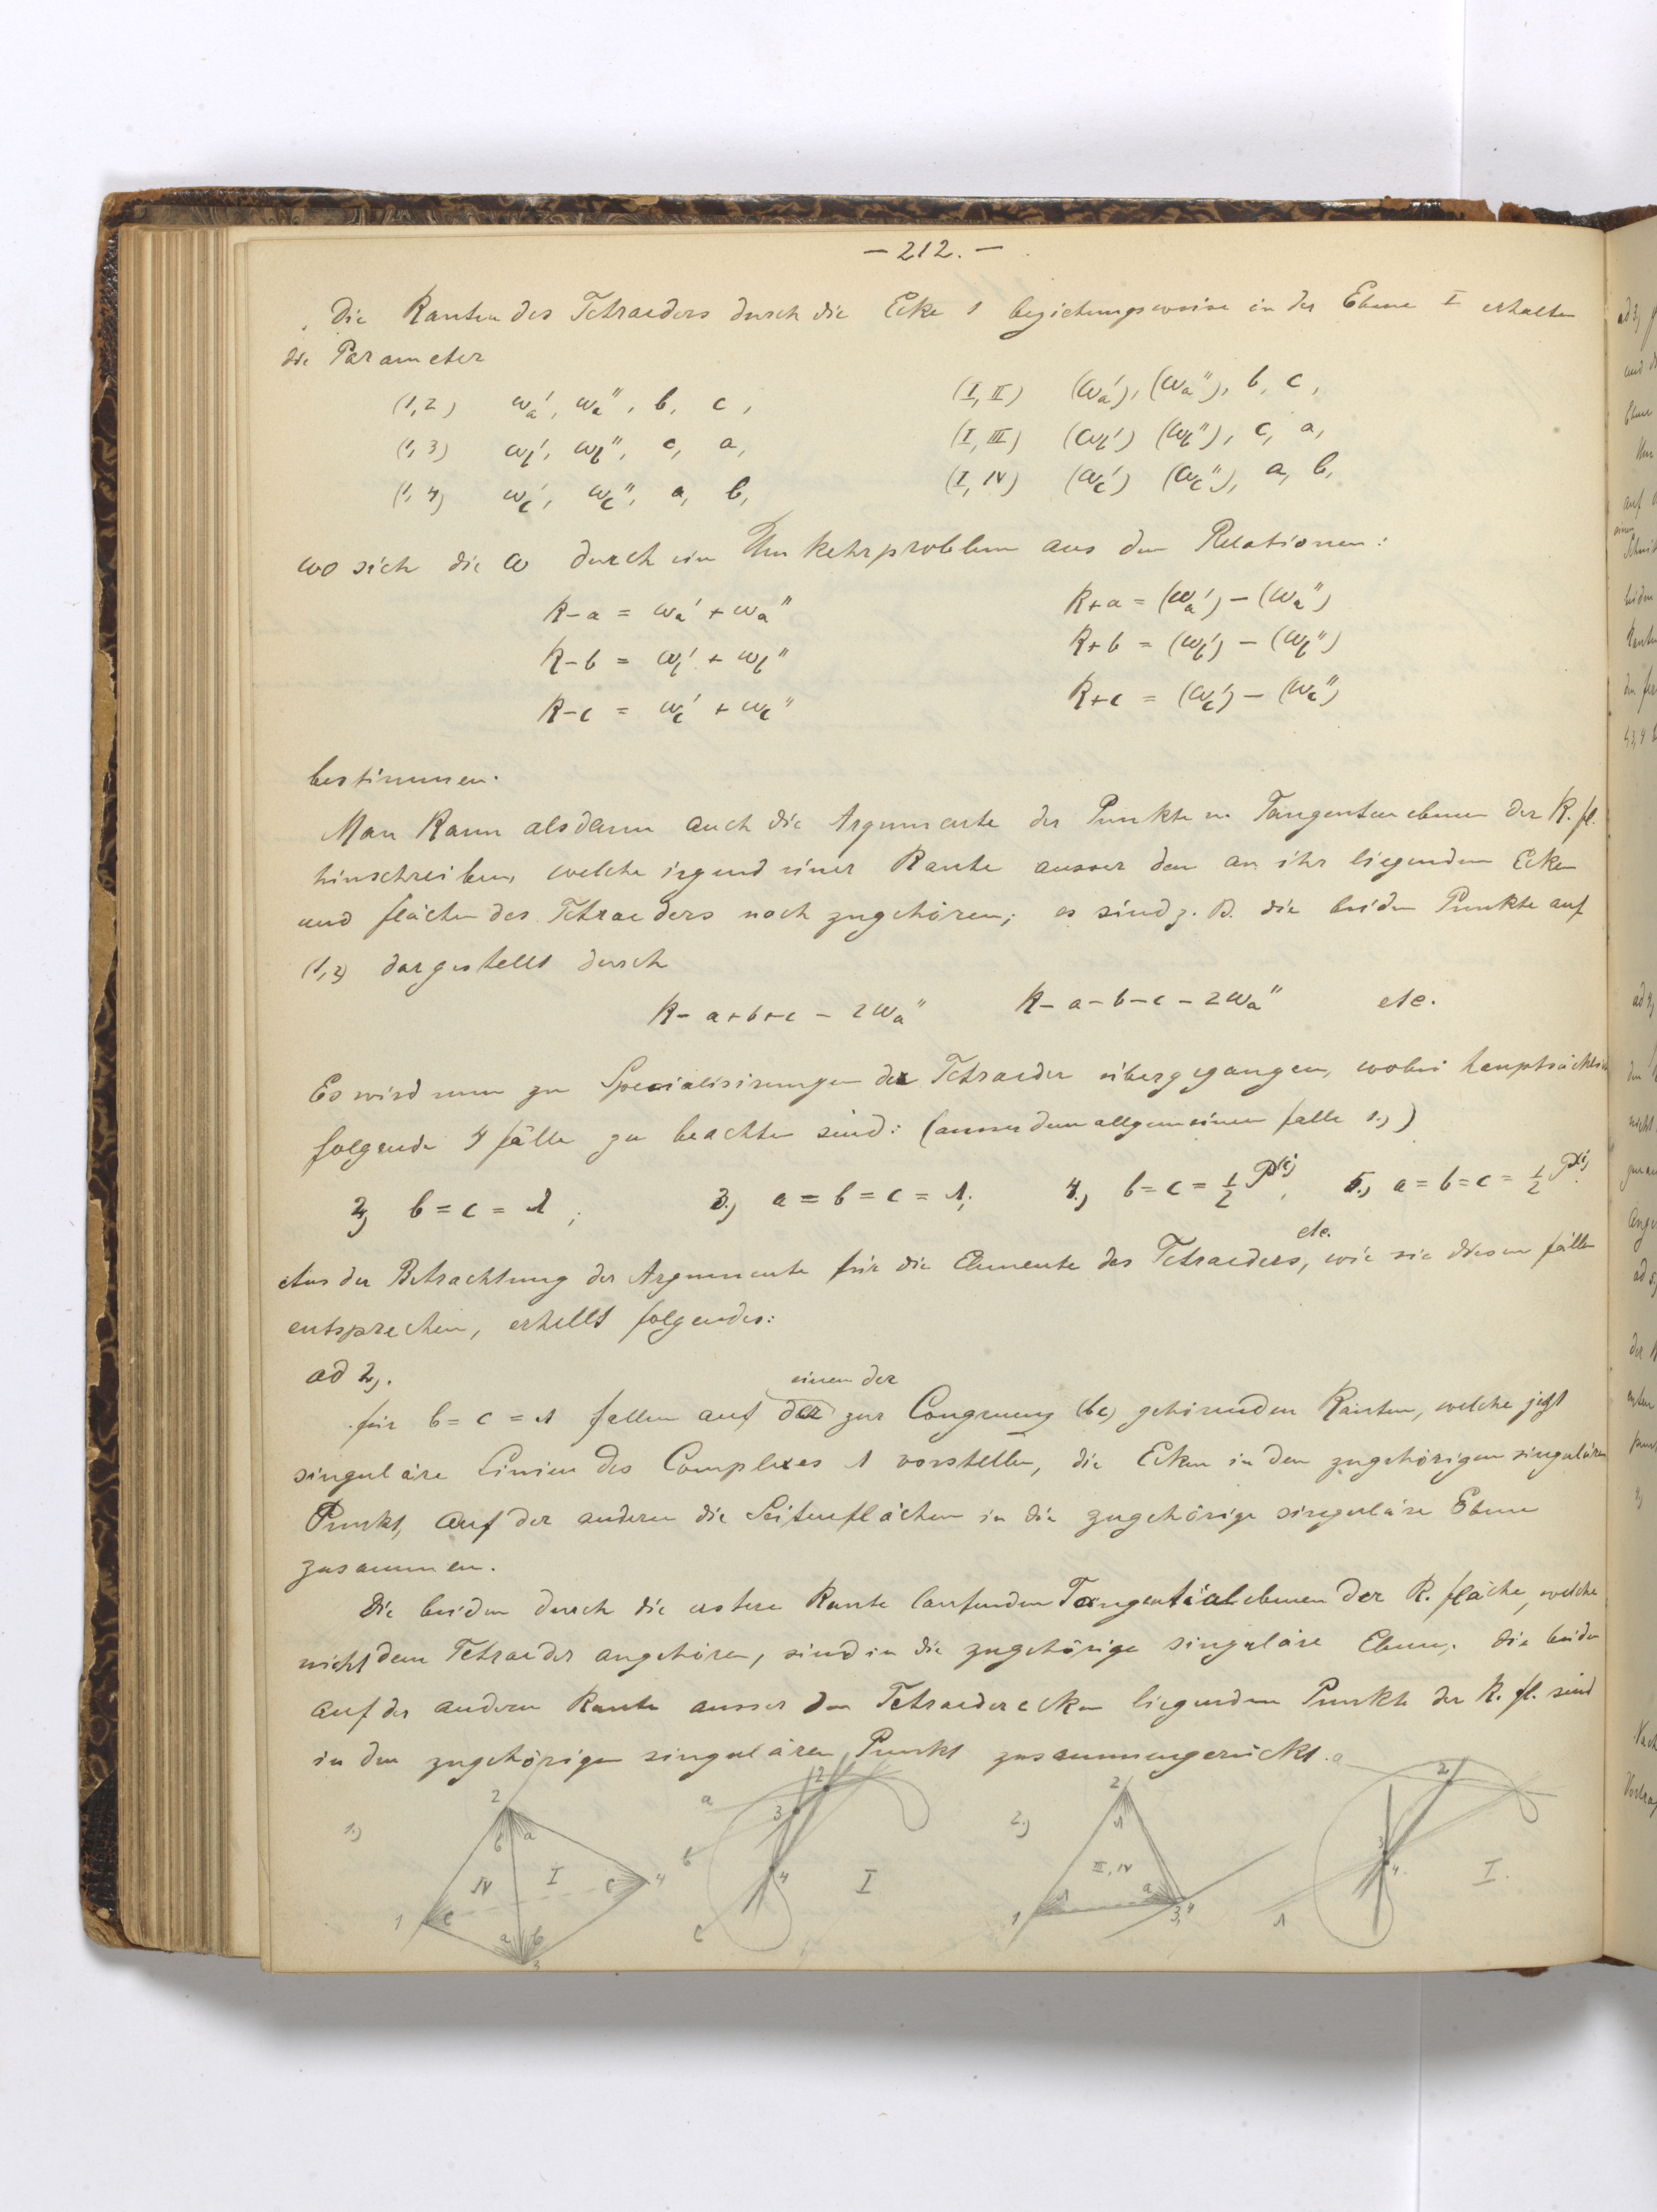 — 212. —
Die Kanten des Tetraeders durch die Ecke 1 beziehungsweise in der Ebene I erhalten
die Parameter
(1,2) ωa', ωa'', b, c, (I, II) (ωa'), (ωa''), b, c,
(1,3) ωb', ωb'', c, a, (I, III) (ωb') (ωb''), c, a,
(1,4) ωc', ωc'', a, b, (I, IV) (ωc') (ωc''), a, b,
wo sich die ω durch ein Umkehrproblem aus den Relationen:
k-a = ωa' + ωa'' k+a = (ωa') - (ωa'')
k-b = ωb' + ωb'' k+b = (ωb') - (ωb'')
k-c = ωc' + ωc'' k+c = (ωc') - (ωc'')
bestimmen.
Man kann alsdann auch die Argumente der Punkte u. Tangentenebenen der K. fl.
hinschreiben, welche irgend einer Kante ausser den an ihr liegenden Ecken
und flächen des Tetraeders noch zugehören; es sind z. B. die beiden Punkte auf
(1,2) dargestellt durch
k-a+b+c - 2ωa'' k-a-b-c - 2ωa'' etc.
Es wird nun zu Specialisirungen der Tetraeder übergegangen, wobei hauptsächlich
folgende 4 fälle zu beachten sind: (ausser dem allgemeinen falle 1.))
2) b = c = λ; 3.) a = b = c = λ; 4.) b = c = ½ P(i), 5.) a = b = c = ½ P(i).
Aus der Betrachtung der Argumente für die Elemente des Tetraeders, etc. wie sie diesen fällen
entsprechen, erhellt folgendes:
ad 2).
für b = c = λ fallen auf einen der zur Congruenz (bc) gehörenden Kanten, welche jetzt
singuläre Linien des Complexes λ vorstellen, die Ecken in den zugehörigen singulären
Punkt, auf der anderen die Seitenflächen in die zugehörige singuläre Ebene
zusammen.
Die beiden durch die erstere Kante laufenden Tangentialebenen der K. fläche, welche
nicht dem Tetraeder angehören, sind in die zugehörige singuläre Ebene, die beiden
auf der anderen Kante ausser den Tetraederecken liegenden Punkte der K. fl. sind
in den zugehörigen singulären Punkt zusammengerückt.
1.) 2 b a IV I c 4 1 c a b 3
a 2 3 b 4 I c
2.) 2 λ III, IV 1 λ a 3,4
a 2 3 4 I. λ